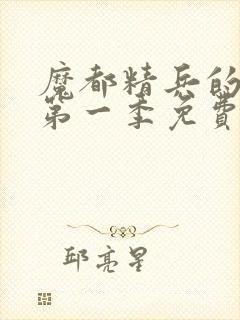 魔都精兵的
第一季免費
邱亮星